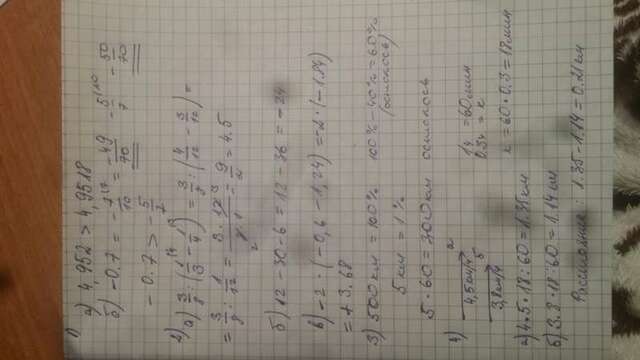 1)
а) 4,952 > 4,9518
б) -0.7 = -7/10 = -49/70   -5/7   -50/70
-0.7 > -5/7
2)
а) 3/8 : (1/3 - 1/4) = 3/8 : (4/12 - 3/12) =
= 3/8 : 1/12 = 3 · 12 / 8 = 9/2 = 4.5
б) 12 - 30 - 6 = 12 - 36 = -24
в) -2 · (-0,6 - 1,24) = -2 · (-1.84)
= +3.68
3) 500 км = 100%   100% - 40% = 60%
(осталось)
5 км = 1%
5 · 60 = 300 км осталось
4)
4,5 км/ч а
3,8 км/ч б
1ч = 60 мин
0.3ч = х
х = 60 · 0.3 = 18 мин
а) 4.5 · 18 : 60 = 1.35 км
б) 3.8 · 18 : 60 = 1.14 км
Расстояние : 1.35 - 1.14 = 0.21 км